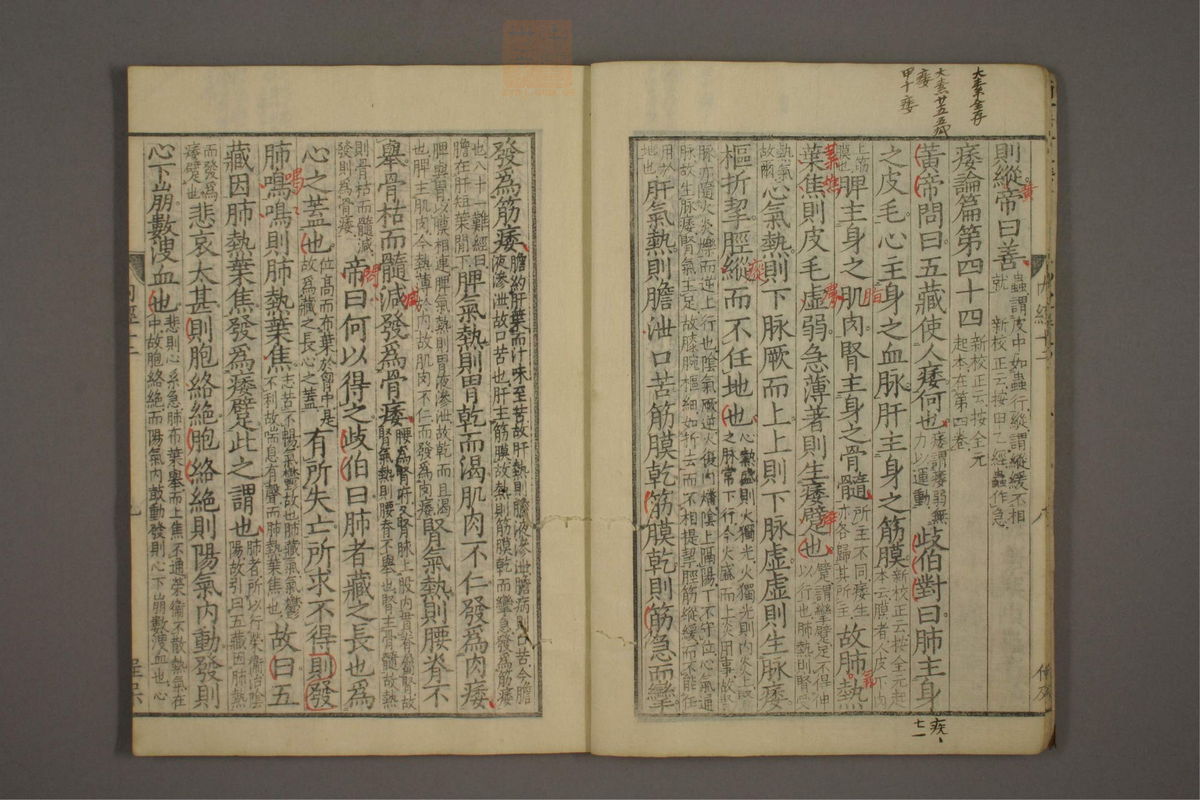 大素全存
大素廿五五藏
痿
甲十痿
則縱帝曰善蟲謂皮中如蟲行縱謂縱緩不相
就 新校正云按甲乙經蟲作急
痿論篇第四十四新校正云按全元
起本在第四卷
黃帝問曰五藏使人痿何也痿謂痿弱無
力以運動歧伯對曰肺主身
之皮毛心主身之血脉肝主身之筋膜新校正云按全元起
本云膜者人皮下肉
上筋
膜也脾主身之肌肉腎主身之骨髓所主不同痿生
亦各歸其所主故肺熱
葉焦則皮毛虛弱急薄著則生痿躄也躄謂攣躄足不得伸
以行也肺熱則腎
熱氣
故爾心氣熱則下脉厥而上上則下脉虛虛則生脉痿
樞折挈脛縱而不任地也心熱盛則火獨光火獨光則內炎上
之脉常下行今火盛而上炎用事故
肝氣熱則膽泄口苦筋膜乾筋膜乾則筋急而攣
發爲筋痿膽約肝葉而汁味至苦故肝熱則膽液滲泄膽病口苦今膽
液滲泄故口苦也肝主筋膜故熱則筋膜乾而攣急發爲筋痿
也八十一難經曰
膽在肝短葉間下脾氣熱則胃乾而渴肌肉不仁發爲肉痿
脾與胃以膜相連脾氣熱則胃液滲泄故乾而且渴
也脾主肌肉今熱薄於內故肌肉不仁而發爲肉痿腎氣熱則腰脊不
舉骨枯而髓減發爲骨痿腰爲腎府又腎脉上股內貫脊屬腎故
腎氣熱則腰脊不舉也腎主骨髓故熱
則骨枯而髓減
發則爲骨痿帝曰何以得之歧伯曰肺者藏之長也爲
心之蓋也位高而布葉於胷中是
故爲藏之長心之蓋有所失亡所求不得則發
肺鳴鳴則肺熱葉焦志苦不暢氣鬱故也肺藏氣氣鬱
不利故喘息有聲而肺熱葉焦也故曰五
藏因肺熱葉焦發爲痿躄此之謂也肺者所以行榮衛治陰
陽故引曰五藏因肺熱
而發爲
痿躄也悲哀太甚則胞絡絕胞絡絕則陽氣內動發則
心下崩數溲血也悲則心系急肺布葉舉而上焦不通榮衛不散熱氣在
中故胞絡絕而陽氣內鼓動發則心下崩數溲血也心